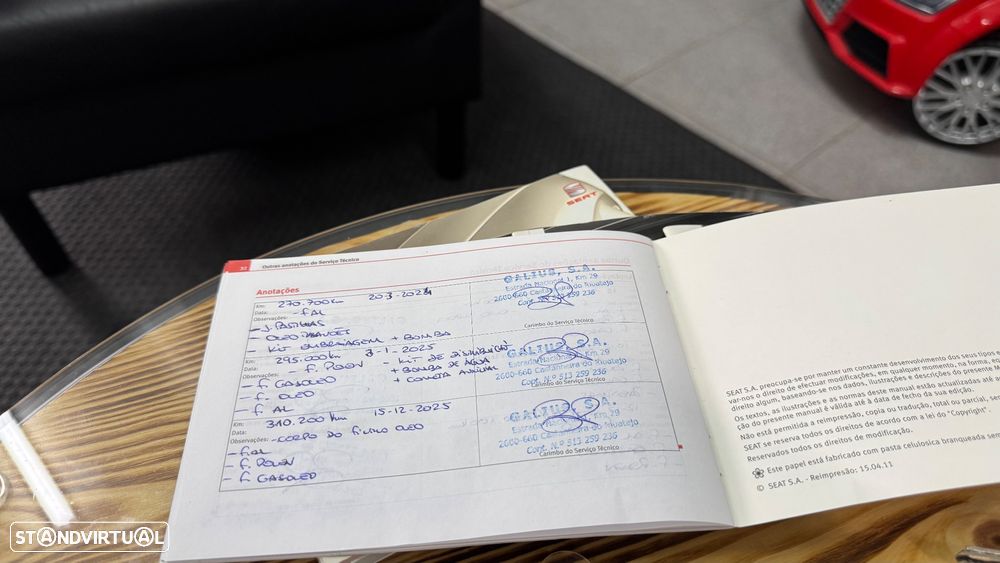 SEAT
32 Outras anotações do Serviço Técnico
Anotações
Km: 270.700km 203-2024
Data: - f AL
Observações:
- J. PASTILHAS
- OLEO
- KIT EMBRAIAGEM + BOMBA
Km: 295.000km 8-1-2025
Data: - f. POLEN - KIT DE DISTRIBUIÇÃO
Observações: + BOMBA DE AGUA
- f. GASOLEO + CORREIA AUXILIAR
- f. OLEO
- f AL
Km: 340.200 km 15-12-2025
Data:
Observações: - CORPO DO FILTRO OLEO
- f. AL
- f. POLEN
- f GASOLEO
GALIUS, S.A.
Estrada Nacional 1, Km 29
2600-660 Castanheira do Ribatejo
Cont. Nº 513 259 236
Carimbo do Serviço Técnico
GALIUS, S.A.
Estrada Nacional 1, Km 29
2600-660 Castanheira do Ribatejo
Cont. N.º 513 259 236
Carimbo do Serviço Técnico
GALIUS, S.A.
Estrada Nacional 1, Km 29
2600-660 Castanheira do Ribatejo
Cont. N.º 513 259 236
Carimbo do Serviço Técnico
SEAT S.A. preocupa-se por manter um constante desenvolvimento dos seus tipos e
var-nos o direito de efectuar modificações, em qualquer momento, na forma, eq
direito algum, baseando-se nos dados, ilustrações e descrições do presente M
Os textos, as ilustrações e as normas deste manual estão actualizadas até a
ção do presente manual é válida até à data de fecho da sua edição.
Não está permitida a reimpressão, copia ou tradução, total ou parcial, sem
SEAT se reserva todos os direitos de acordo com a lei do "Copyright".
Reservados todos os direitos de modificação.
Este papel está fabricado com pasta celulosica branqueada sem
© SEAT S.A. - Reimpresão: 15.04.11
STANDVIRTUAL